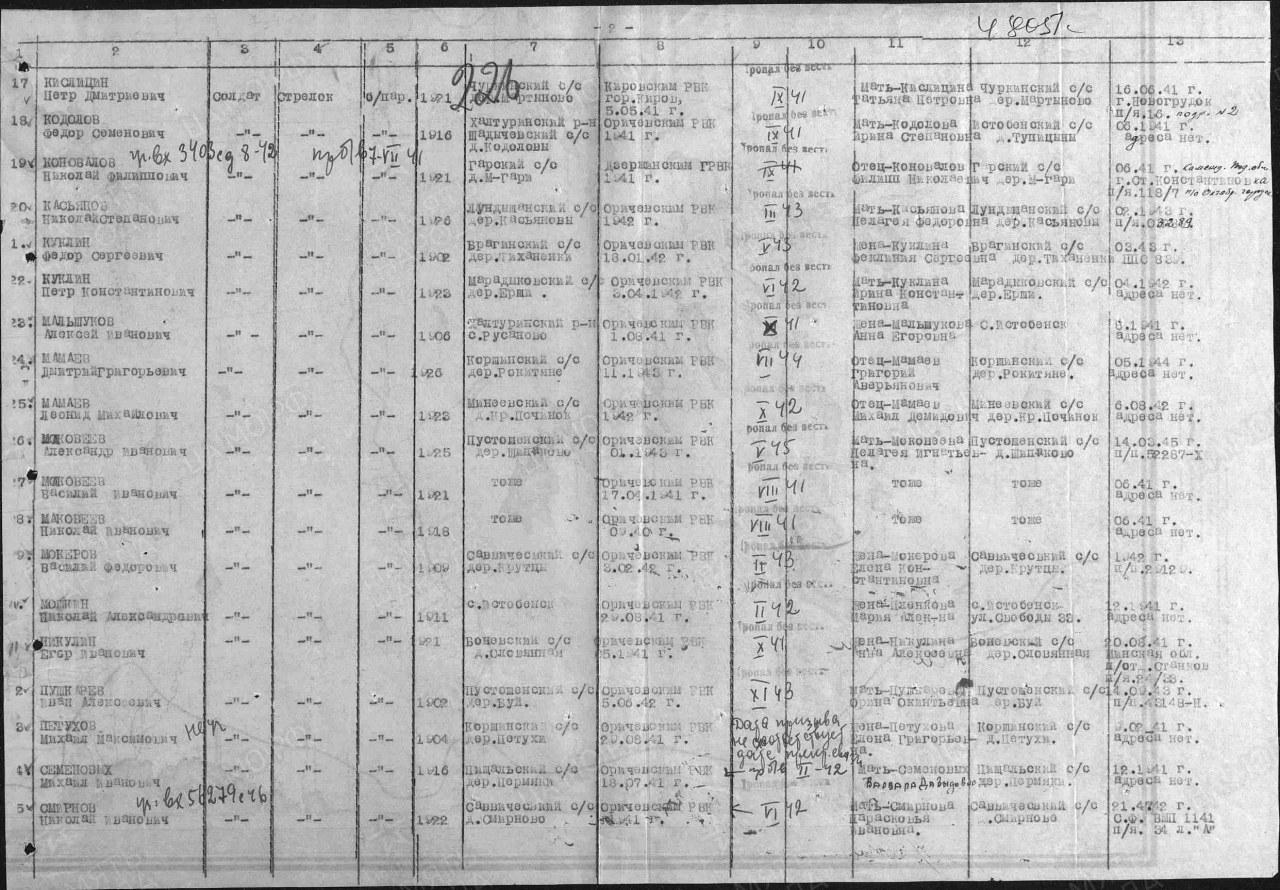 - 2 -
1 2 3 4 5 6 7 8 9 10 11 12 13
226
17 КИСЛИЦИН Кировским РВК Пропал без вести Мать-Кислицина Чуркинский с/с 16.06.41 г.
Петр Дмитриевич солдат стрелок б/пар. 1921 гор.Киров, IX 41 Татьяна Петровна дер.Мартыново г.Новогрудок
5.05.41 г. п/я.16. подр. №2
18. КОДОЛОВ Халтуринский р-н Оричевским РВК Пропал без вести Мать-Кодолова Истобенский с/с 06.1941 г.
Федор Семенович -"- -"- -"- 1916 Шадычевский с/с 1941 г. IX 41 Ирина Степановна д.Тупицины адреса нет.
д.Кодоловы
19. КОНОВАЛОВ Гарский с/с Дзержинским ГРВК Пропал без вести Отец-Коновалов Гарский с/с 06.41 г.
Николай Филиппович -"- -"- -"- 1921 д.М-Гари 1941 г. IX 41 Филипп Николаевич дер.М-Гари г.Ст.Константиновка
п/я.118/7
20. КАСЬЯНОВ Лунданский с/с Оричевским РВК Пропал без вести Мать-Касьянова Лунданский с/с 02.1943 г.
НиколайСтепанович -"- -"- -"- 1926 дер.Касьяновы 1942 г. III 43 Пелагея Федоровна дер.Касьяновы
1. КУКЛИН Брагинский с/с Оричевским РВК Пропал без вести Жена-Куклина Брагинский с/с 03.43 г.
Федор Сергеевич -"- -"- -"- 1902 дер.Тиханенки 18.01.42 г. V 43 Феклиния Сергеевна дер.Тиханенки ППС 839.
22. КУКЛИН Марадыковский с/с Оричевским РВК Пропал без вести Мать-Куклина Марадыковский с/с 04.1942 г.
Петр Константинович -"- -"- -"- 1923 дер.Ерши. 3.04.1942 г. VI 42 Ирина Констан- дер.Ерши. адреса нет.
тиновна
23. МАЛЬШУКОВ Халтуринский р-н Оричевским РВК Пропал без вести Жена-Мальшукова С.Истобенск 8.1941 г.
Алексей Иванович -"- -"- -"- 1906 с.Русаново 1.08.41 г. 41 Анна Егоровна адреса нет.
24. МАМАЕВ Коршинский с/с Оричевским РВК Пропал без вести Отец-Мамаев Коршинский с/с 05.1944 г.
ДмитрийГригорьевич -"- -"- -"- 1926 дер.Рокитяне 11.1943 г. VII 44 Григорий дер.Рокитяне. адреса нет.
Аверьянович
25. МАМАЕВ Минеевский с/с Оричевским РВК Пропал без вести Отец-Мамаев Минеевский с/с 6.08.42 г.
Леонид Михайлович -"- -"- -"- 1923 д.Кр.Починок 1942 г. X 42 Михаил Демидович дер.Кр.Починок адреса нет.
26. МОКОВЕЕВ Пустошенский с/с Оричевским РВК Пропал без вести Мать-Моковеева Пустошенский с/с 14.03.45 г.
Александр Иванович -"- -"- -"- 1925 01.1943 г. V 45 Пелагея Игнатьев- п/п.52287-Х
на.
27. МОКОВЕЕВ тоже Оричевским РВК Пропал без вести тоже тоже 06.41 г.
Василий Иванович -"- -"- -"- 1921 17.04.1941 г. VIII 41 адреса нет.
28. МАКОВЕЕВ тоже Оричевским РВК Пропал без вести тоже тоже 06.41 г.
Николай Иванович -"- -"- -"- 1918 09.40 г. VIII 41 адреса нет.
9. МОКЕРОВ Саввичевский с/с Оричевским РВК Пропал без вести Жена-Мокерова Саввичевский с/с 1.42 г.
Василий Федорович -"- -"- -"- 1909 дер.Крутцы 3.02.42 г. 43 Елена Кон- дер.Крутцы.
стантиновна
МОШКИН с.Истобенск Оричевским РВК Пропал без вести с.Истобенск 12.1941 г.
Николай Александрович -"- -"- -"- 1911 29.08.41 г. II 42 Мария Алек-на ул.Свободы 33. адреса нет.
11 НИКУЛИН 1921 Боневский с/с Оричевским РВК Пропал без вести Жена-Никулина Боневский с/с 20.08.41 г.
Егор Иванович -"- -"- -"- д.Словянная 5.1941 г. X 41 Анна Алексеевна дер.Словянная Минская обл.
п/от. Станков
п/я.24/33.
2 ПУШКАРЕВ Пустошенский с/с Оричевским РВК Пропал без вести Мать-Пушкарева Пустошенский с/с 14.09.43 г.
Иван Алексеевич -"- -"- -"- 1902 дер.Буй. 5.06.42 г. XI 43 дер.Буй п/п.43148-Н.
3 ПЕТУХОВ Коршинский с/с Оричевским РВК Дата призыва Жена-Петухова Коршинский с/с 9.02.41 г.
Михаил Максимович -"- -"- -"- 1904 дер.Петухи 29.08.41 г. не соответствует Елена Григорьев- д.Петухи. адреса нет.
на.
4 СЕМЕНОВЫХ 1916 Пищальский с/с Оричевским РВК II-42 Мать-Семеновых Пищальский с/с 12.1941 г.
Михаил Иванович -"- -"- -"- дер.Пермяки 18.07.41 г. Варвара Давыдовна дер.Пермяки. адреса нет.
5 СМИРНОВ Саввический с/с Оричевским РВК Мать-Смирнова Саввичевский с/с 21.4.42 г.
Николай Иванович -"- -"- -"- 1922 д.Смирново 1941 г. VI 42 Парасковья д.Смирново С.Ф. ВМП 1141
Ивановна. п/я. 34 л."А"